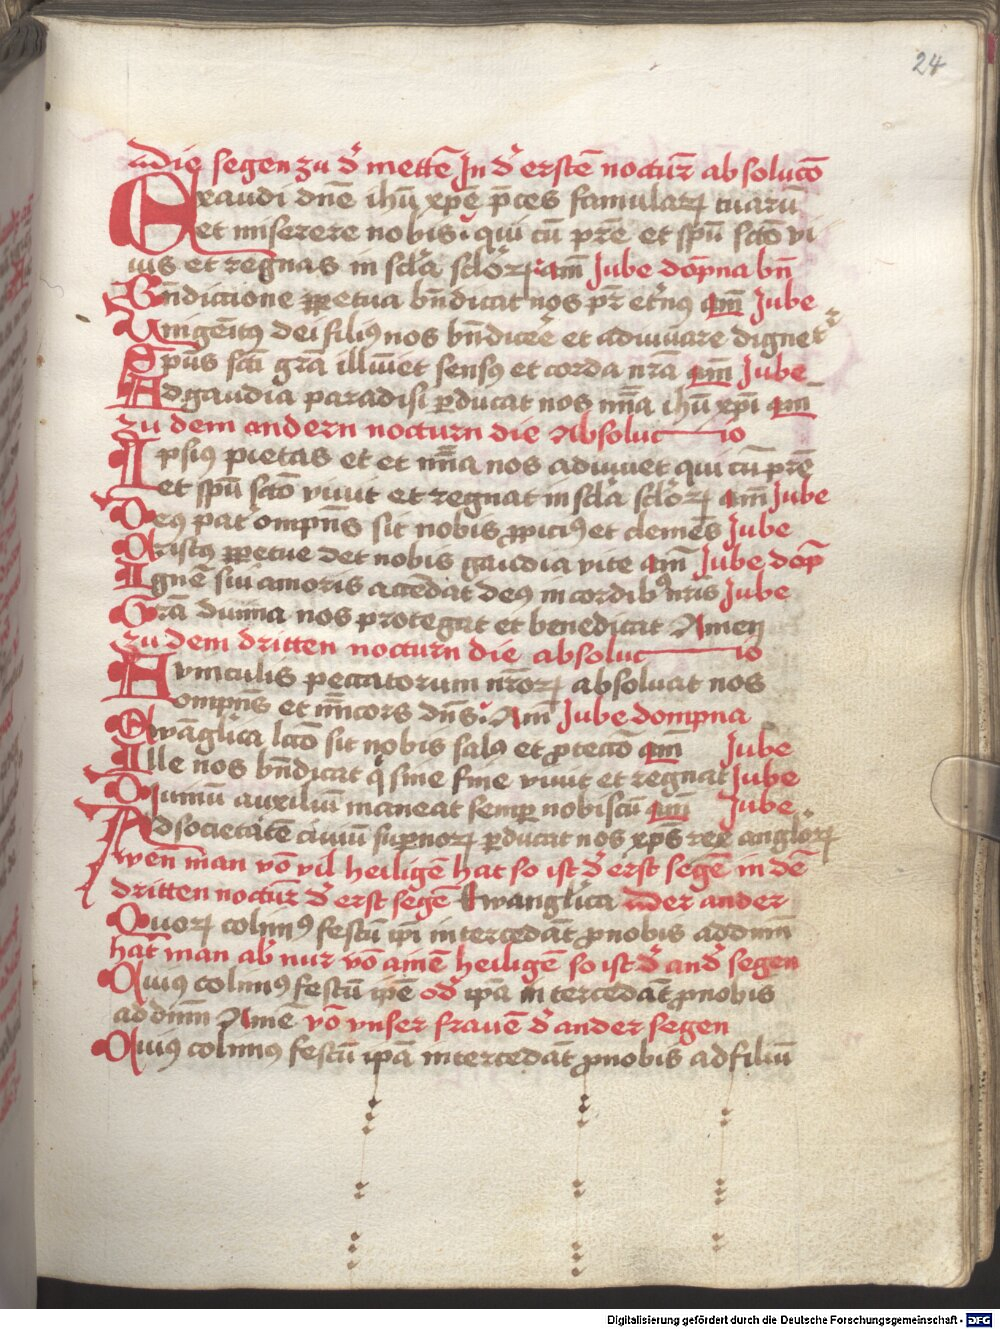 24
die segen zu d̕ mettē In d̕ erstē noctur̄ absolucō
Exaudi dn̄e ihū xp̄e p̄ces famularꝝ tuarū
et miserere nobis qui cū pr̄e et sp̄u sctō vi
uis et regnas in scl̕a scl̕orꝝ am̄ Jube dop̄na bn̄
Bn̄dictione ꝑpetua bn̄dicat nos pr̄ et̕nꝰ am̄ Jube
Vnigēitꝰ dei filiꝰ nos bn̄dicē et adiuuare dignet᷑
Sp̄us sc̄i gr̄a illūiet sensꝰ et corda nr̄a am̄ Jube
Ad gaudia paradisi ꝑducat nos mīa ihū xp̄i am̄
zu dem andern nocturn die Absolucio
Ipsiꝰ pietas et et mīa nos adiuuet qui cū pr̄e
et sp̄u sctō viuit et regnat in scl̕a scl̕orꝝ am̄ Jube
Deꝰ pat̕ omp̄ns sit nobis ꝓpiciꝰ et clemēs Jube
Cristꝰ ꝑpetue det nobis gaudia vite am̄ Jube dop̄
Ignē sui amoris accēdat deꝰ in cordibꝰ nr̄is Jube
Gr̄a diuina nos protegat et benedicat Amen
zu dem dritten nocturn die absolucio
A vinculis peccatorum nr̄orꝝ absoluat nos
omp̄ns et mīcors dn̄s Am̄ Jube dompna
Ewāglica lcco sit nobis salꝰ et ꝓteccō am̄ Jube
Ille nos bn̄dicat q̕ sine fine viuit et regnat Jube
Diuinū auxiliū maneat semꝑ nobiscū am̄ Jube
Ad societatē ciuiū suꝑnorꝝ ꝑducat nos xp̄s rex anglorꝝ
wen man vō vil heiligē hat so ist d̕ erst segē in dē
dritten noctur̄ d̕ erst segē Ewanglica der ander
Quorꝝ colimꝰ festū ip̄i intercedāt ꝓ nobis ad dnm̄
hat man ab̕ nur vō ainē heiligē so ist d̕ and̕ segen
Cuiꝰ colimꝰ festū ip̄e od̕ ip̄a intercedāt ꝓ nobis
ad dnm̄ Amē vō vnser frauē d̕ ander segen
Cuiꝰ colimꝰ festū ip̄a intercedāt ꝓ nobis ad filiū
Digitalisierung gefördert durch die Deutsche Forschungsgemeinschaft - DFG